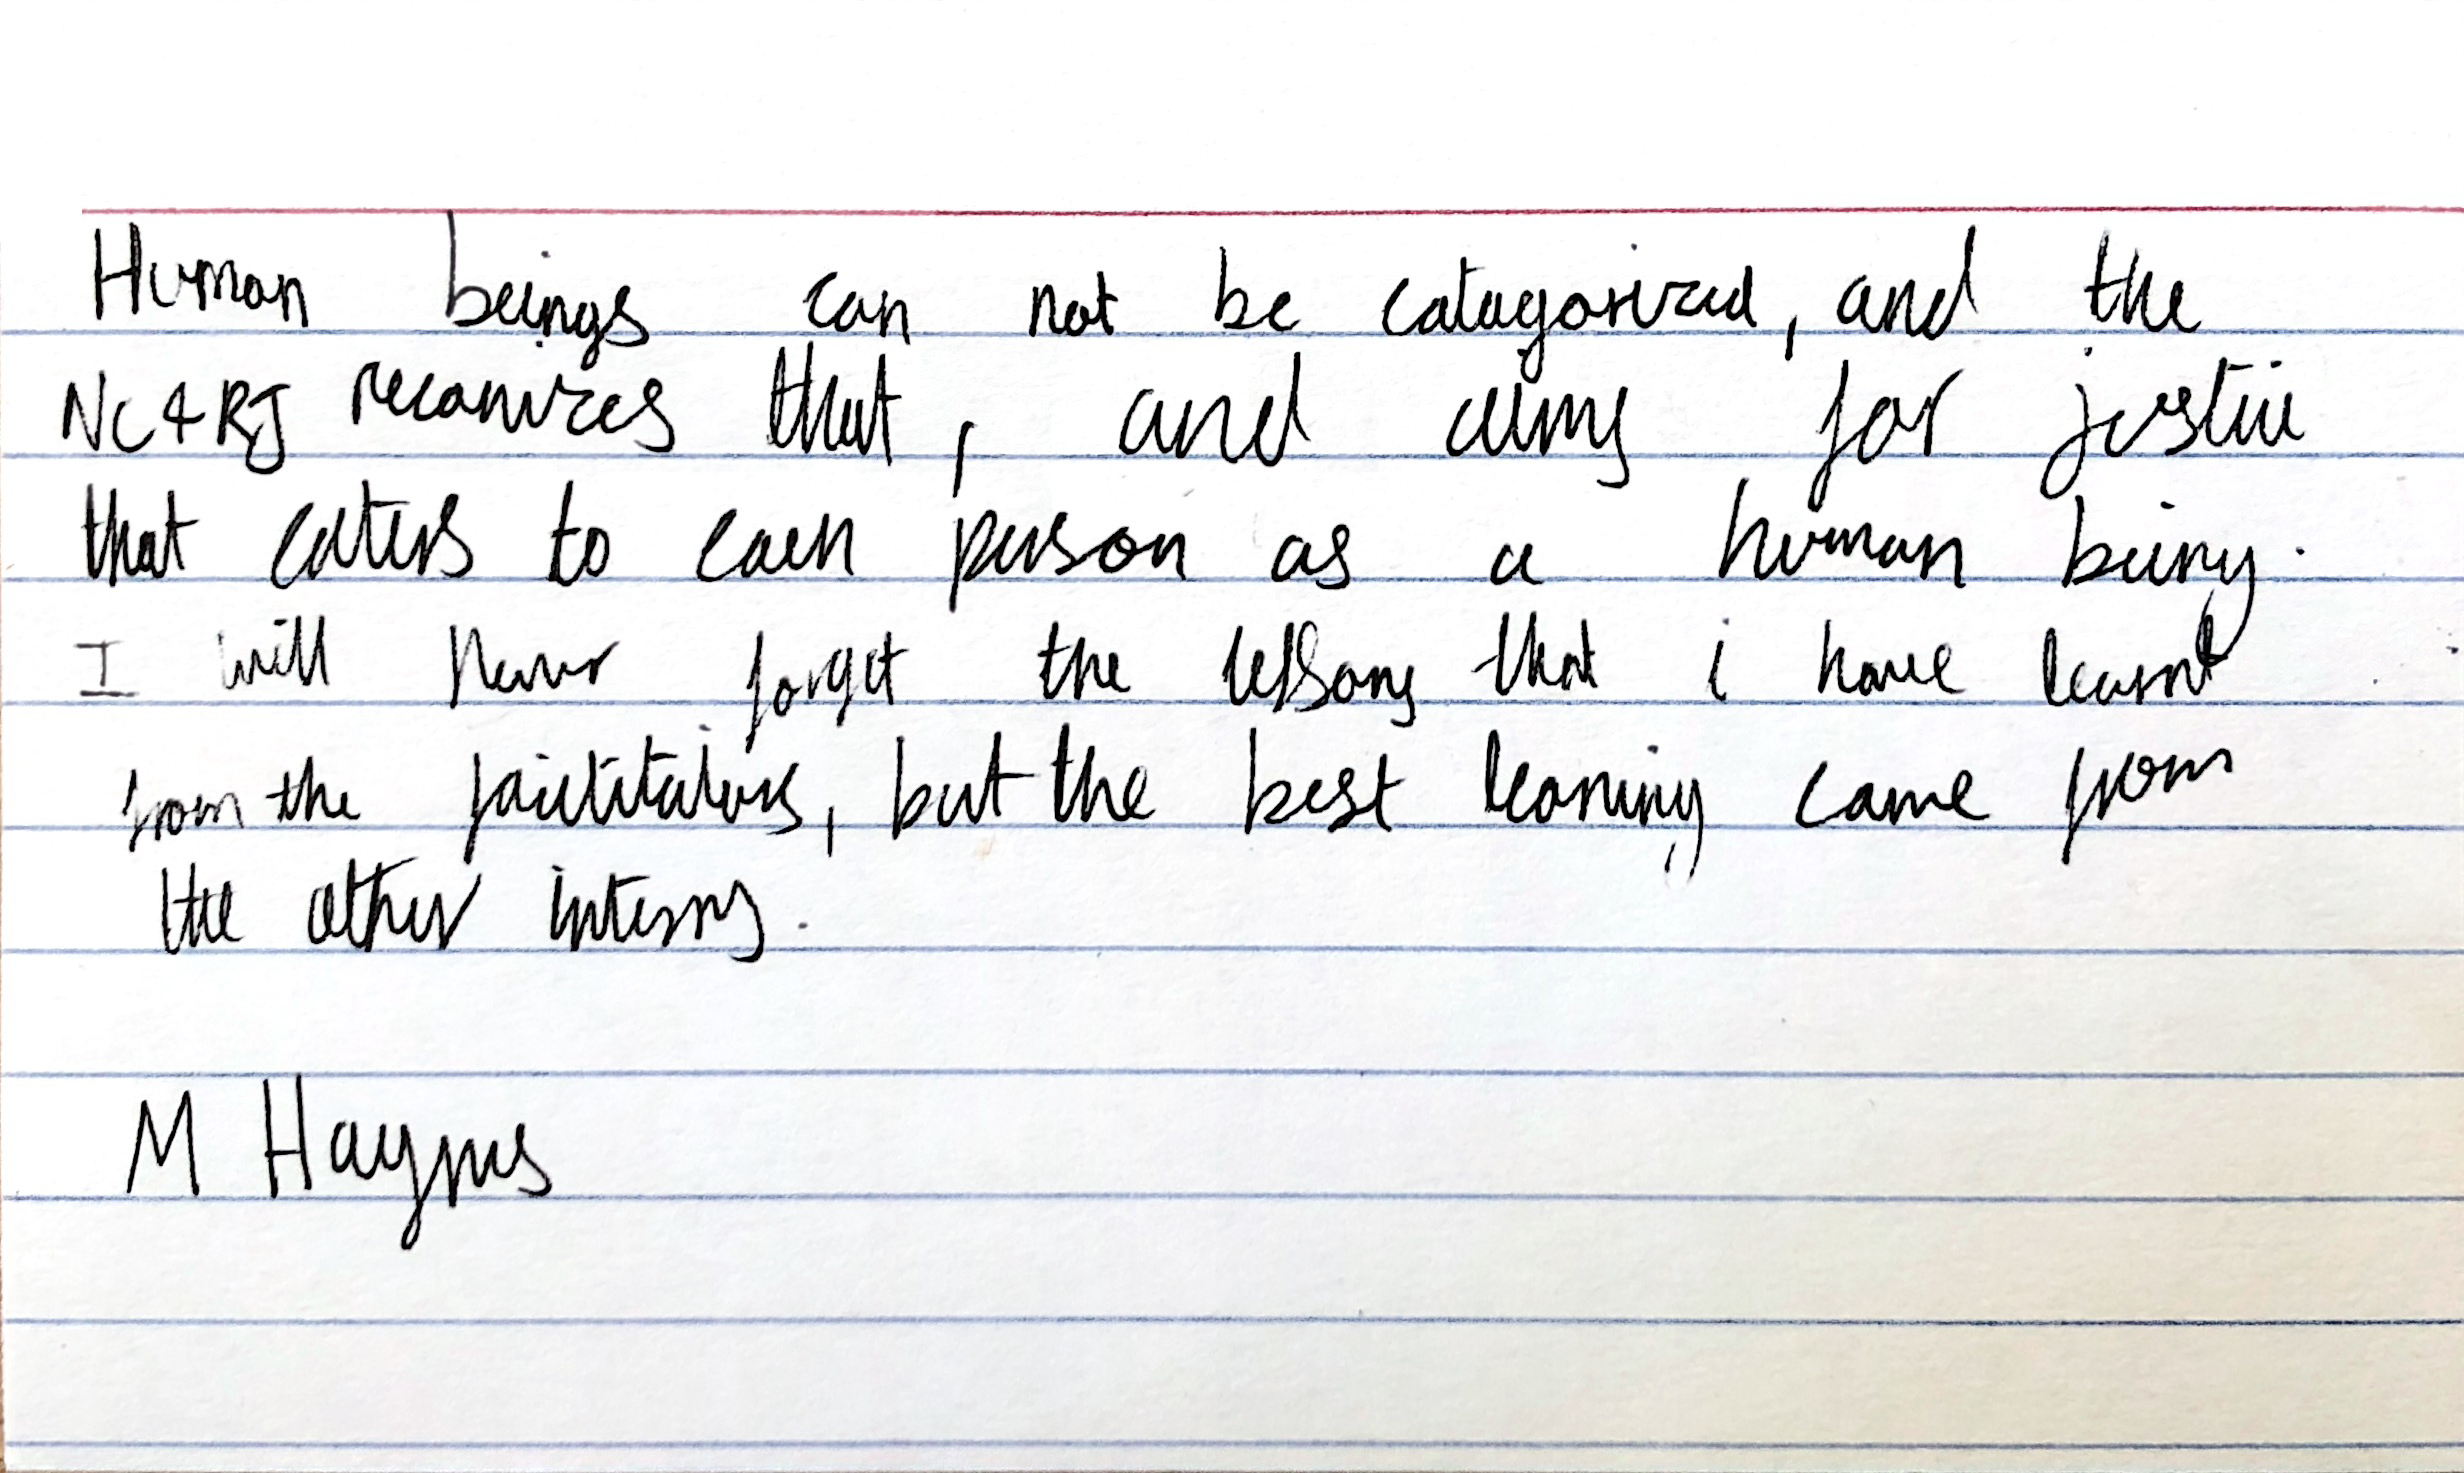 Human beings can not be catagorized, and the
NC4RJ reconizes that, and aims for justice
that caters to each person as a human being.
I will never forget the lessons that i have learnt
from the faicilitators, but the best learning came from
the other interns.
M Haynes